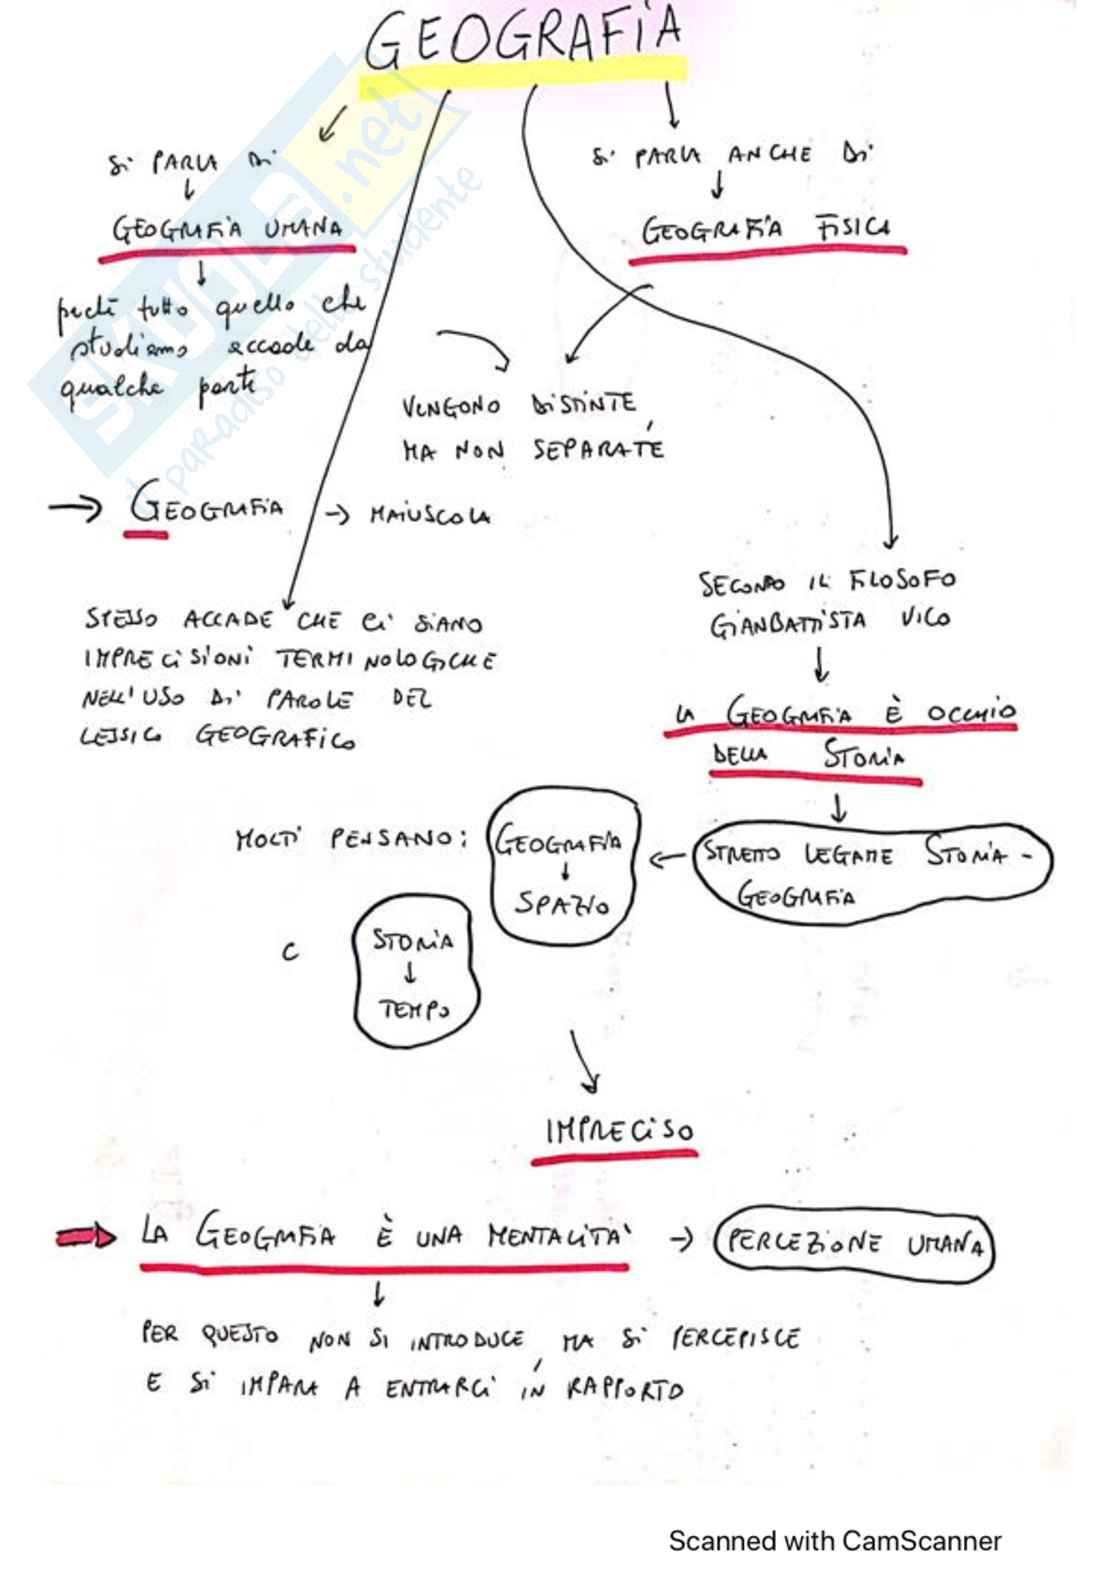 GEOGRAFIA
Si PARLA Di
GEOGRAFIA UMANA
perché tutto quello che
studiamo accade da
qualche parte
Si PARLA ANCHE Di
GEOGRAFIA FISICA
VENGONO DISTINTE,
MA NON SEPARATE
→ GEOGRAFIA → MAIUSCOLA
STESSO ACCADE CHE Ci SIANO
IMPRECISIONI TERMINOLOGICHE
NELL'USO Di PAROLE DEL
LESSICO GEOGRAFICO
SECONDO IL FILOSOFO
GIANBATTISTA VICO
LA GEOGRAFIA È OCCHIO
DELLA STORIA
STRETTO LEGAME STORIA -
GEOGRAFIA
MOLTI PENSANO:
GEOGRAFIA
SPAZIO
E
STORIA
TEMPO
IMPRECISO
LA GEOGRAFIA È UNA MENTALITA' → PERCEZIONE UMANA
PER QUESTO NON SI INTRODUCE, MA Si PERCEPISCE
E Si IMPARA A ENTRARCI IN RAPPORTO
SKUOLA.net
il paradiso dello studente
Scanned with CamScanner